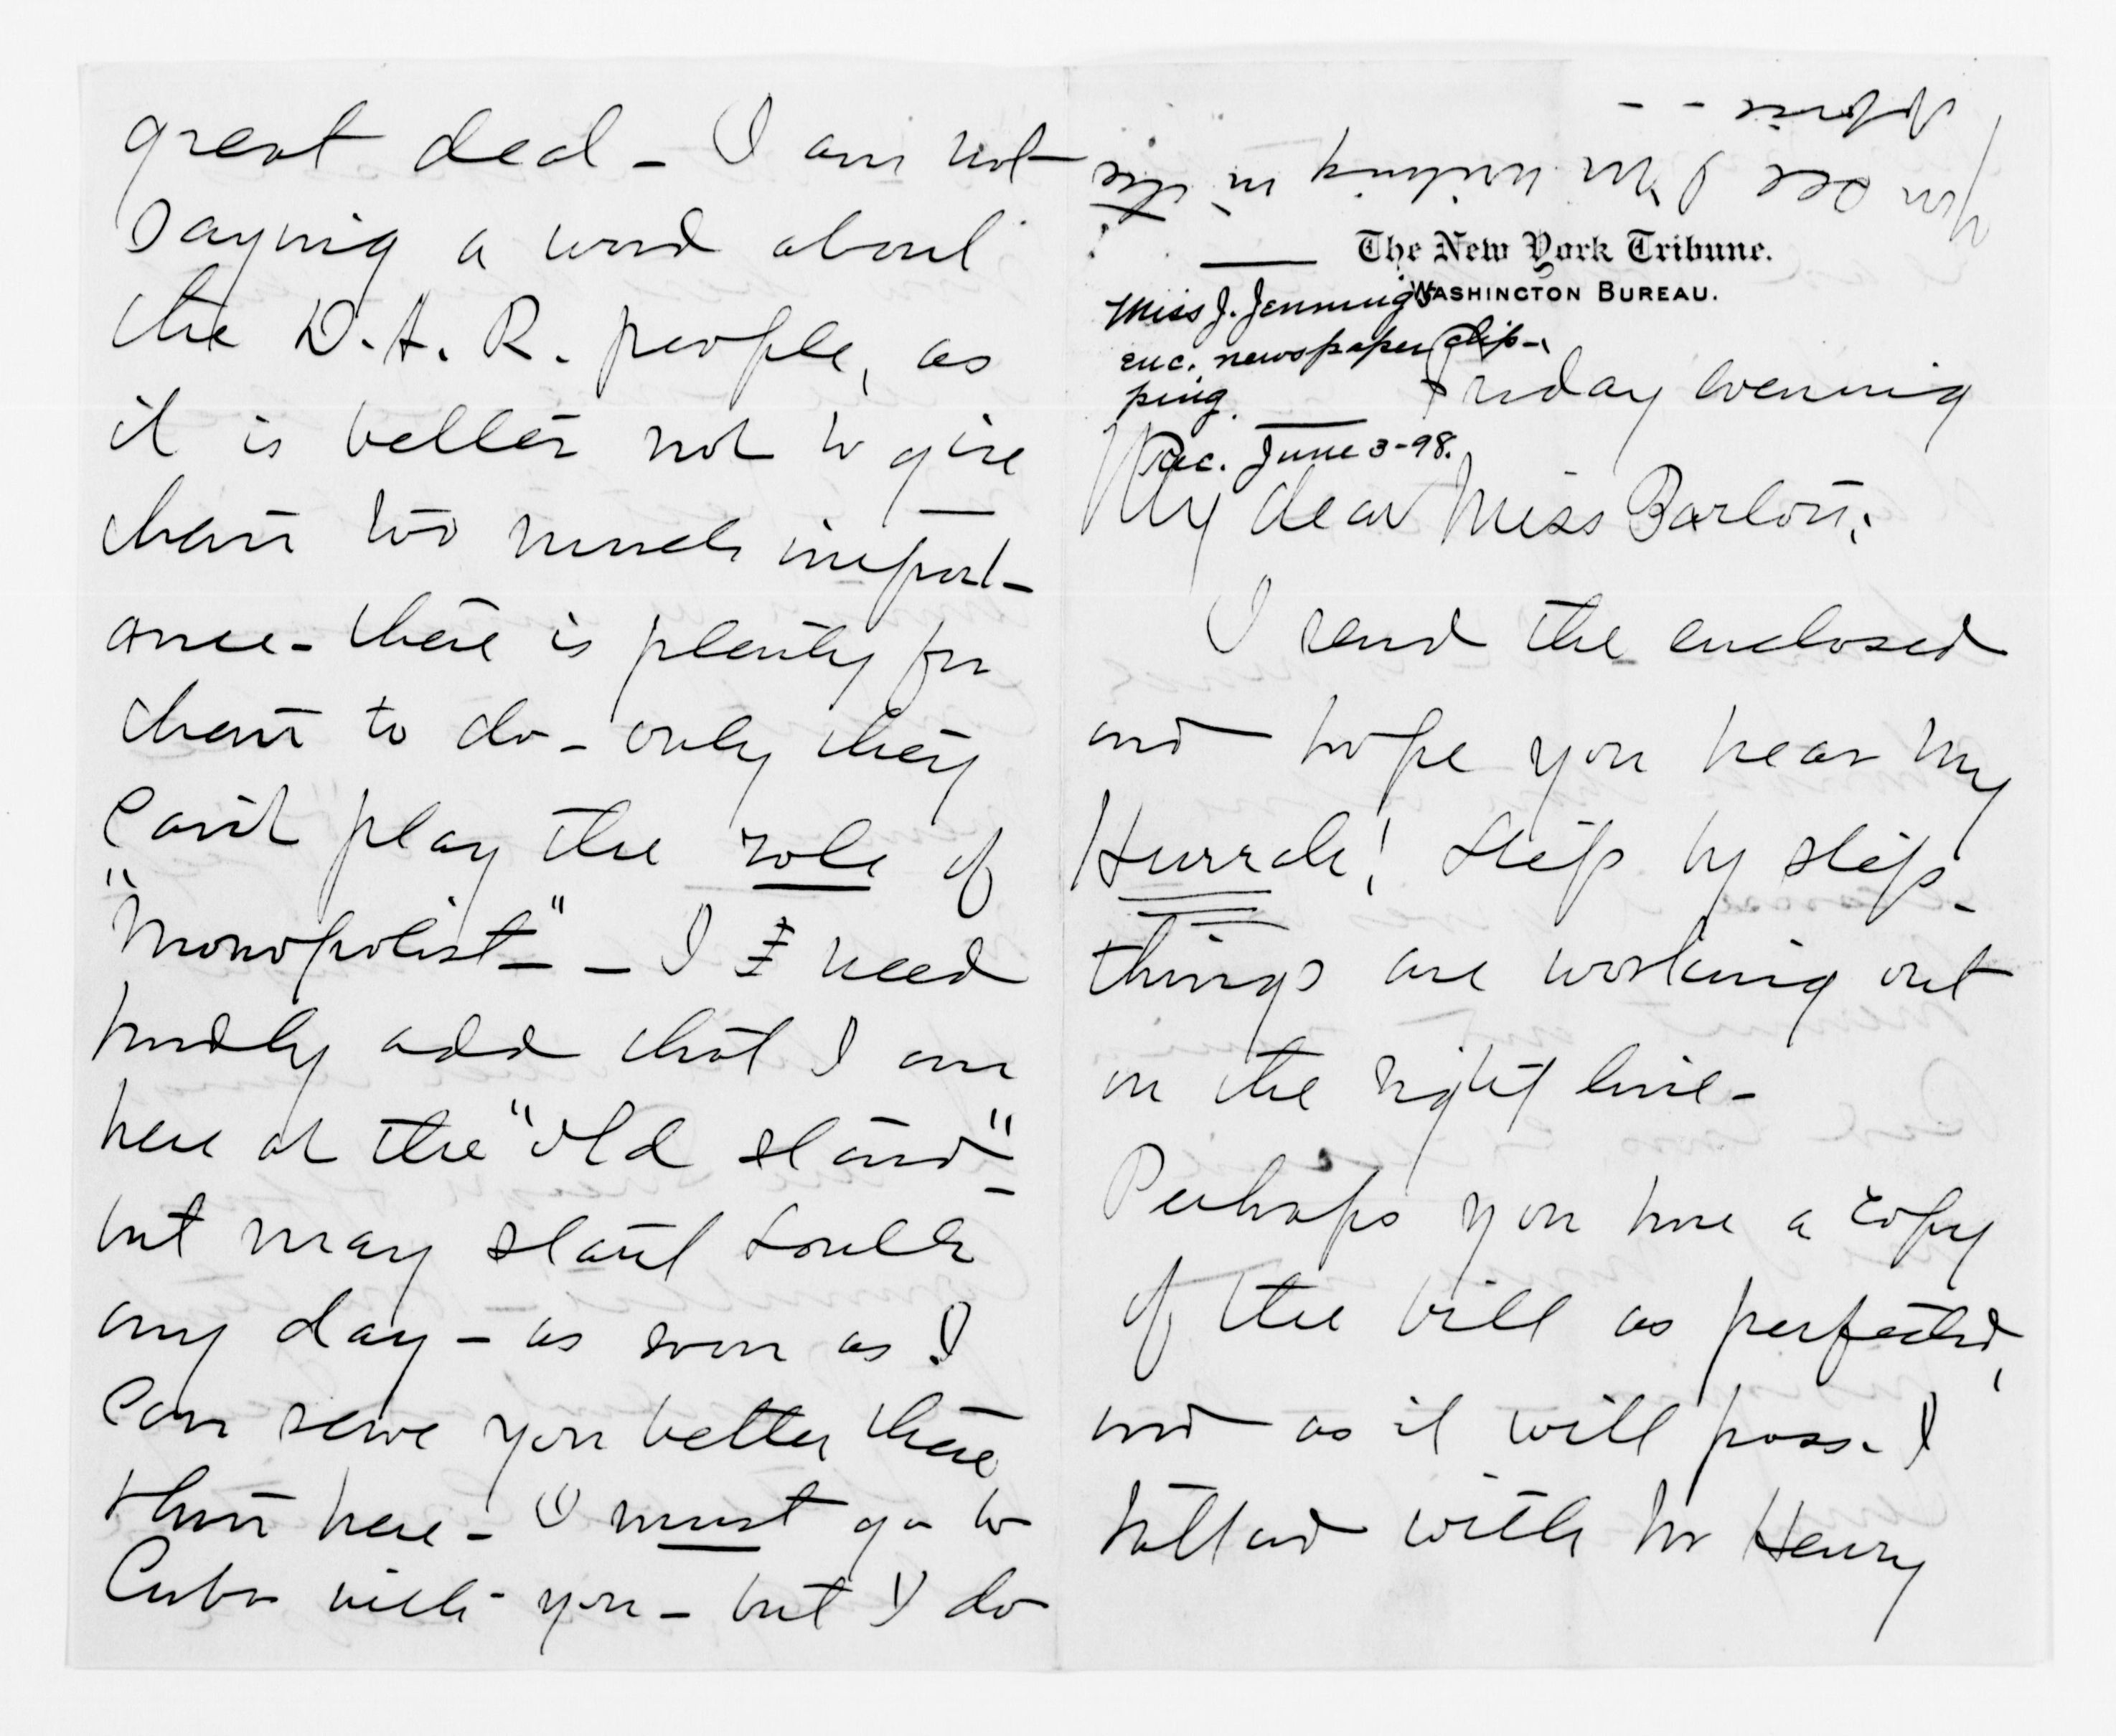 great deal - I am not
saying a word about
the D. A. R. people, as
it is better not to give
them too much import-
ance - there is plenty for
them to do - only they
can't play the role of
"monopolist" - I need
hardly add that I am
here at the "old stand" -
but may start South
any day - as soon as I
can serve you better there
than here - I must go to
Cuba with you - but I do
You see I'm writing in the
office - -
The New York Tribune.
Washington Bureau.
Miss J. Jennings
enc. newspaper clip-
ping.
Rec. June 3-98.
Friday evening
My dear Miss Barton;
I send the enclosed
and hope you hear my
Hurrah! Step by step -
things are working out
on the right line -
Perhaps you have a copy
of the bill as perfected,
and as it will pass - I
talked with Mr Henry